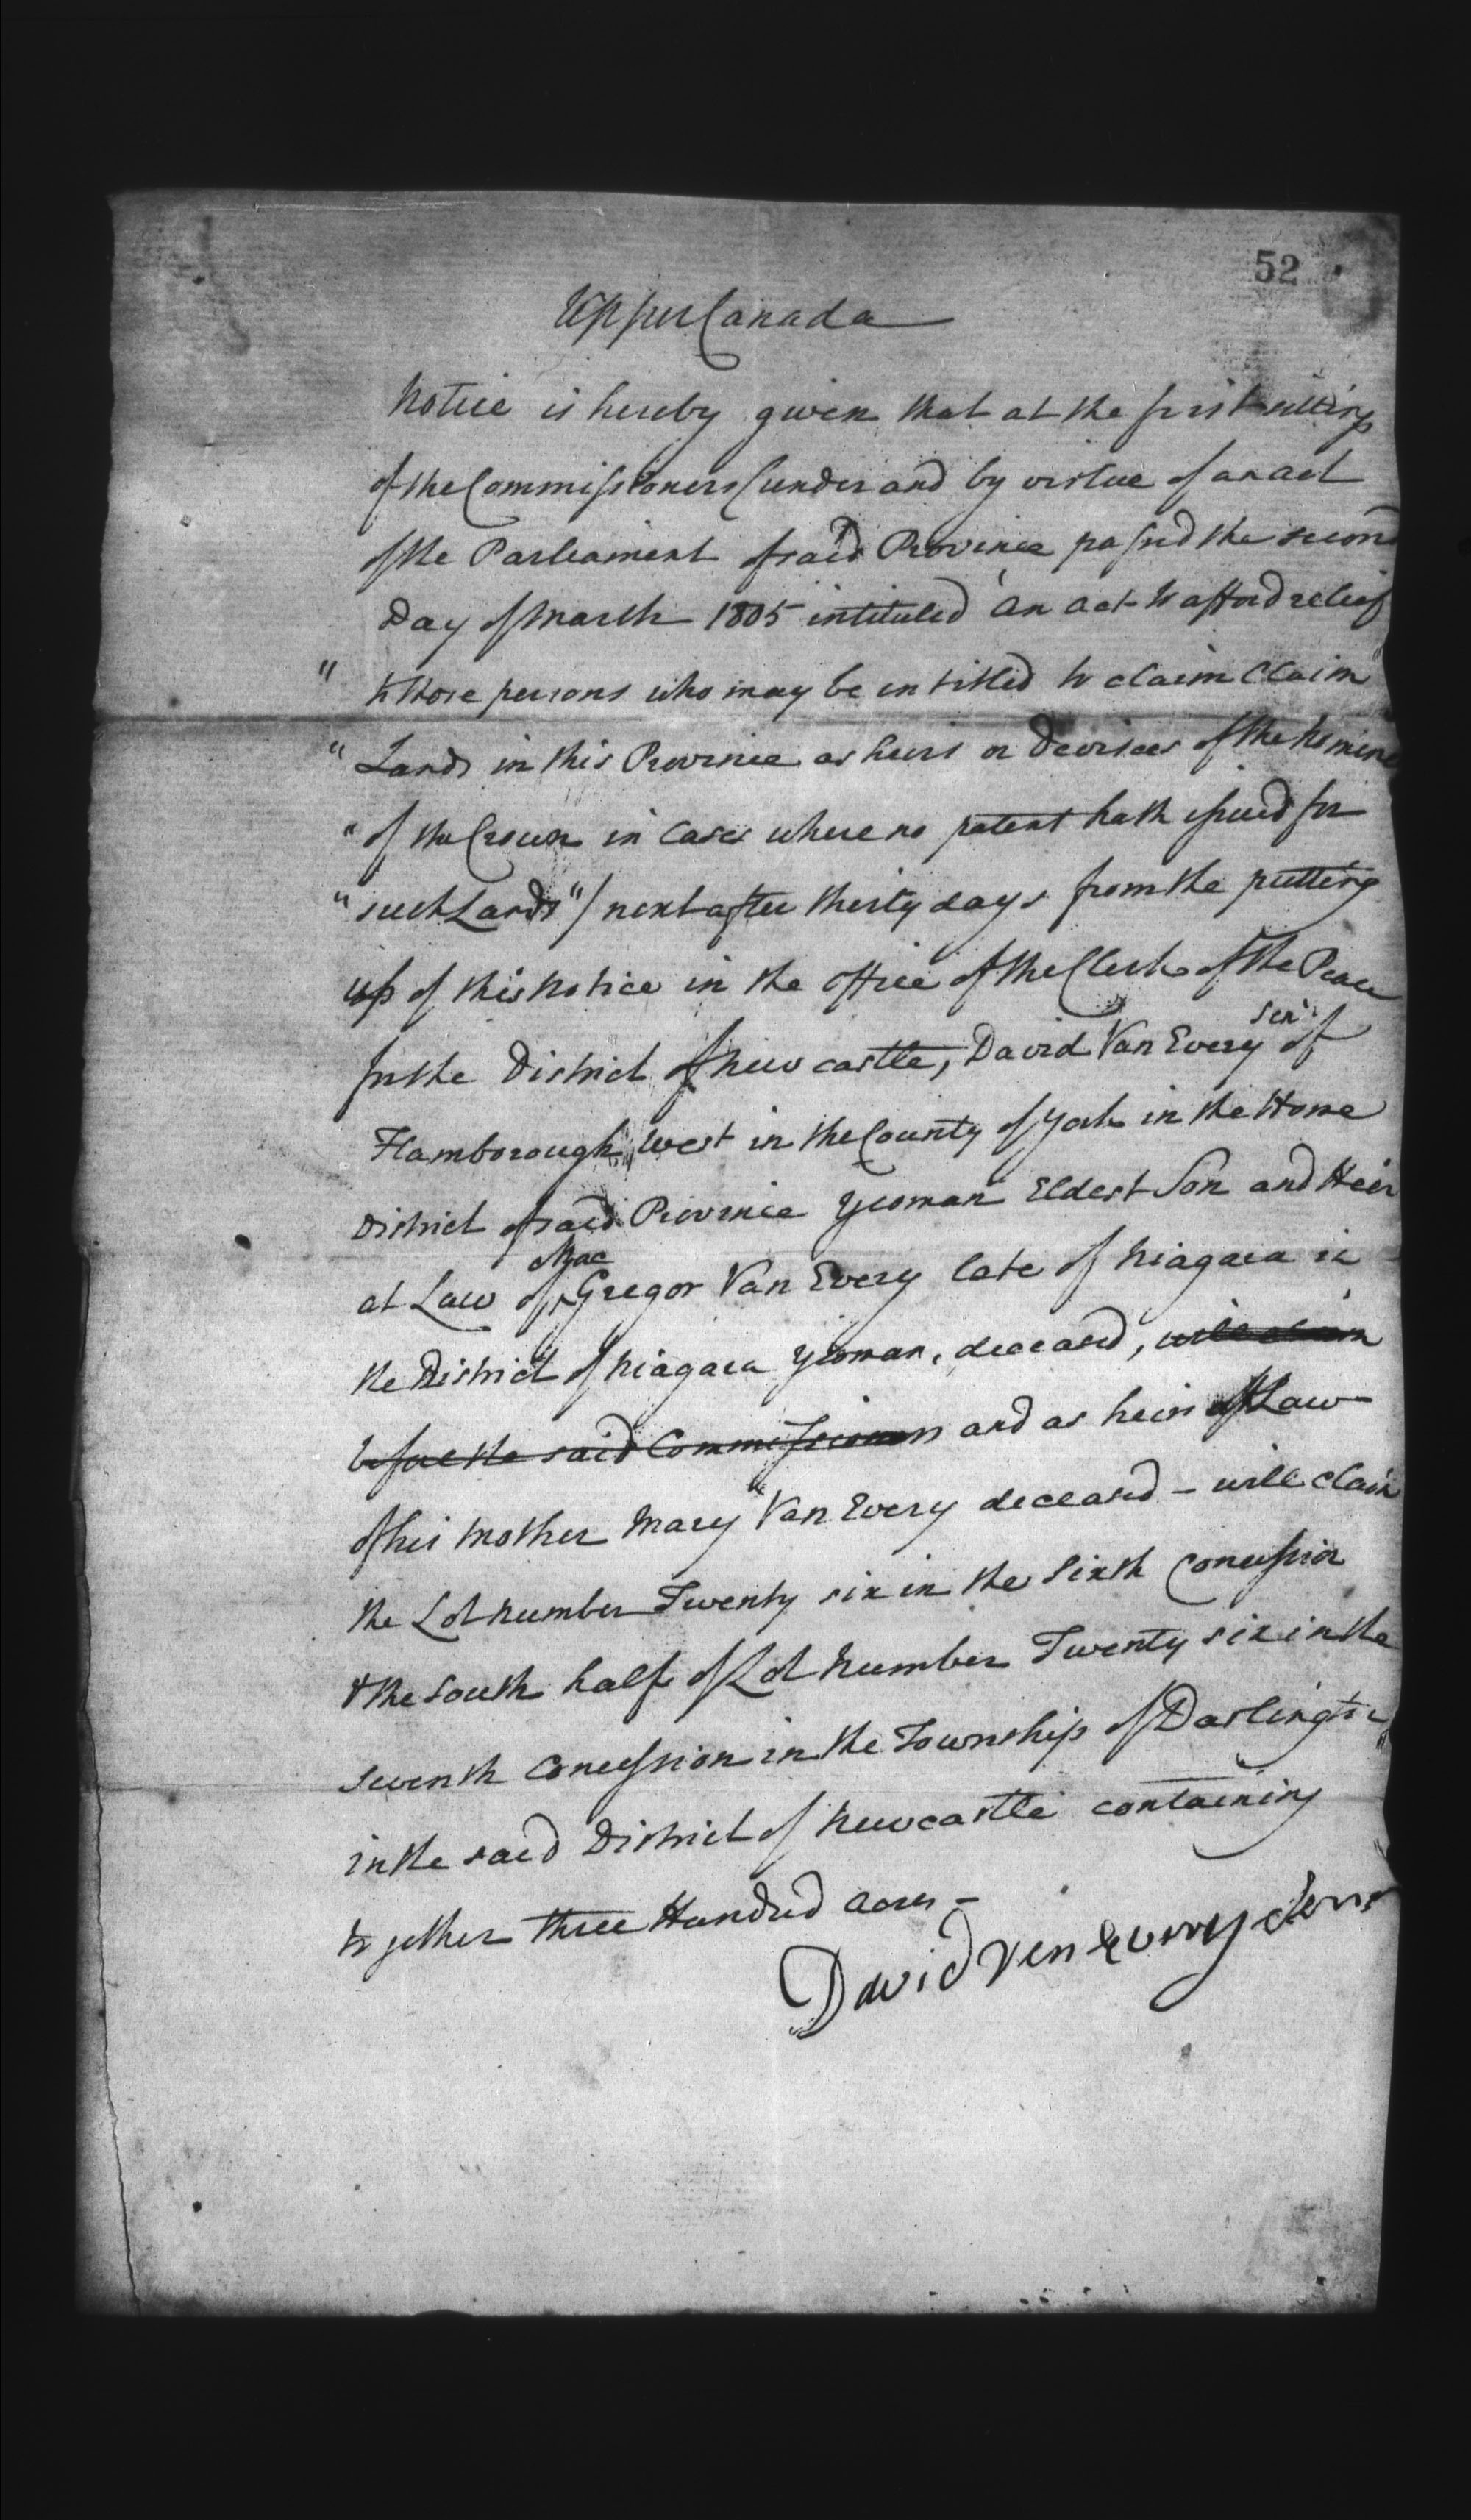 52
Upper Canada
Notice is hereby given that at the first sitting
of the Commissioners (under and by virtue of an act
of the Parliament of said Province passed the second
Day of March 1805 intituled "An Act to afford relief
" to those persons who may be entitled to claim Claim
" Lands in this Province as heirs or Devisees of the Nominees
" of the Crown in Cases where no patent hath issued for
" such Lands"/ next after thirty days from the putting
up of this Notice in the office of the Clerk of the Peace
for the District of Newcastle, David Van Every Senr of
Flamborough West in the County of York in the Home
District of said Province Yeoman Eldest Son and Heir
at Law of Mac Gregor Van Every late of Niagara in
the District of Niagara Yeoman, deceased, will claim
before the said Commissioners and as heir at Law
of his Mother Mary Van Every deceased - will claim
the Lot Number Twenty six in the Sixth Concession
& the South half of Lot Number Twenty six in the
Seventh Concession in the Township of Darlington
in the said District of Newcastle containing
together three Hundred Acres -
David Van Every Senr